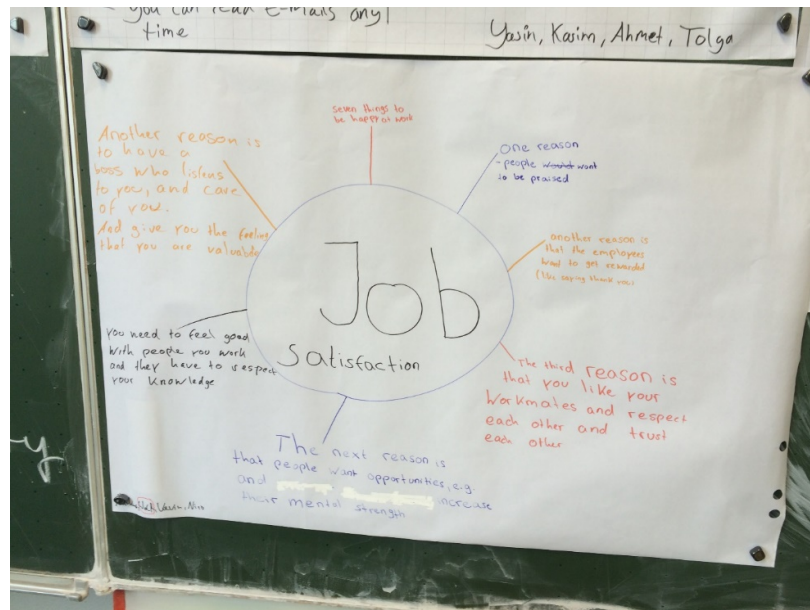 you can read E-mails any
time
Yasin, Kasim, Ahmet, Tolga
seven things to
be happy at work
one reason
- people want
to be praised
another reason is
that the employees
want to get rewarded
(like saying thank you
The third reason is
that you like your
workmates and respect
each other and trust
each other
The next reason is
that people want opportunities, e.g.
and increase
their mental strength
you need to feel good
with people you work
and they have to respect
your knowledge
Another reason is
to have a
boss who listens
to you, and care
of you.
And give you the feeling
that you are valuable
Job
satisfaction
y